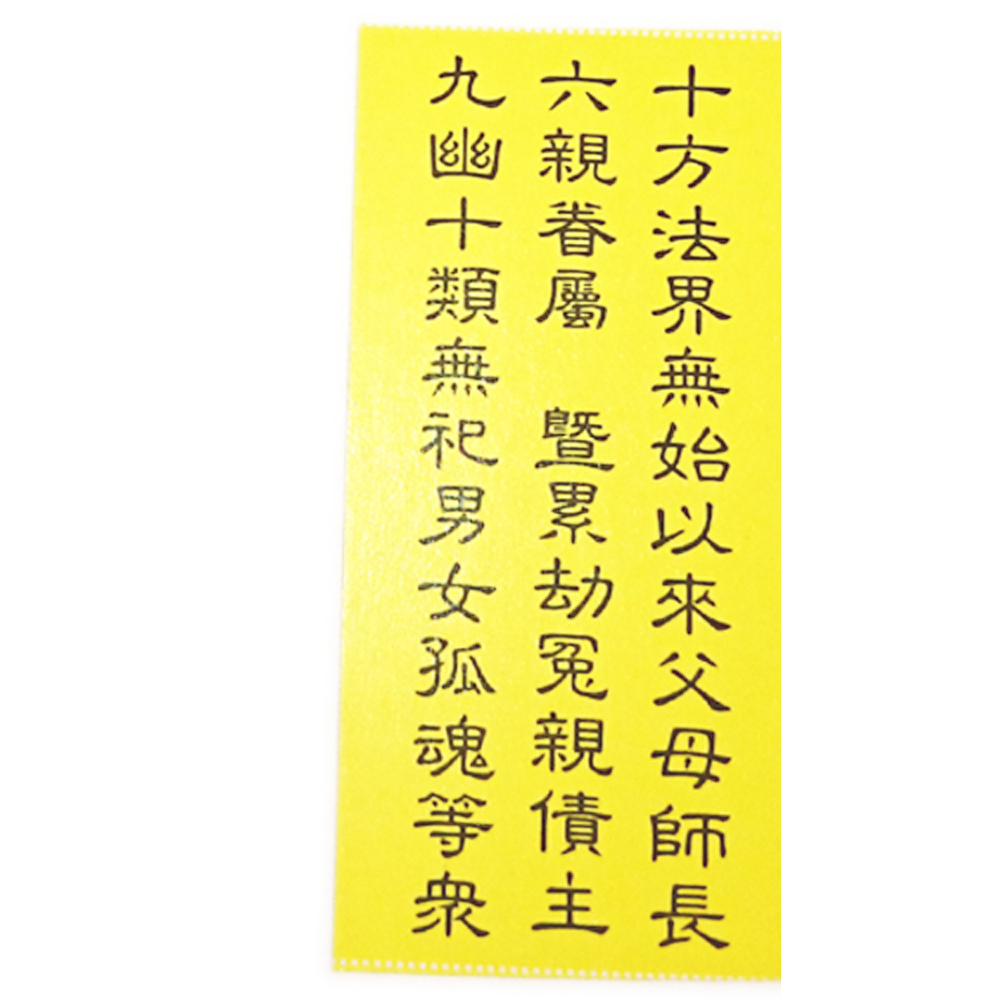 十方法界無始以來父母師長
六親眷屬　暨累劫冤親債主
九幽十類無祀男女孤魂等衆